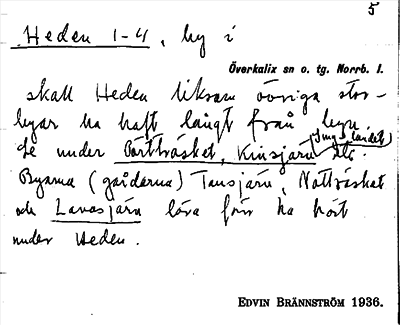 5
Heden 1-4, by i
Överkalix sn o. tg. Norrb. l.
skall Heden liksom övriga stor-
byar ha haft långt från byn
Se under Pärtträsket, Kinsjärn etc.
Byarna (gårdarna) Tansjärn, Nattträsket
och Lavasjärn löra förr ha hört
under Heden.
EDVIN BRÄNNSTRÖM 1936.